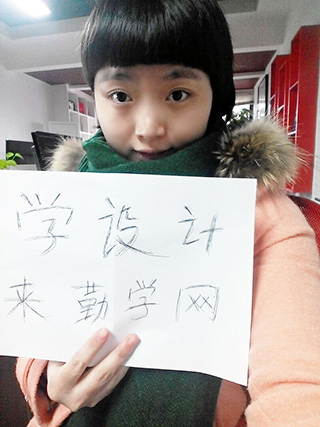 学设计
来勤学网